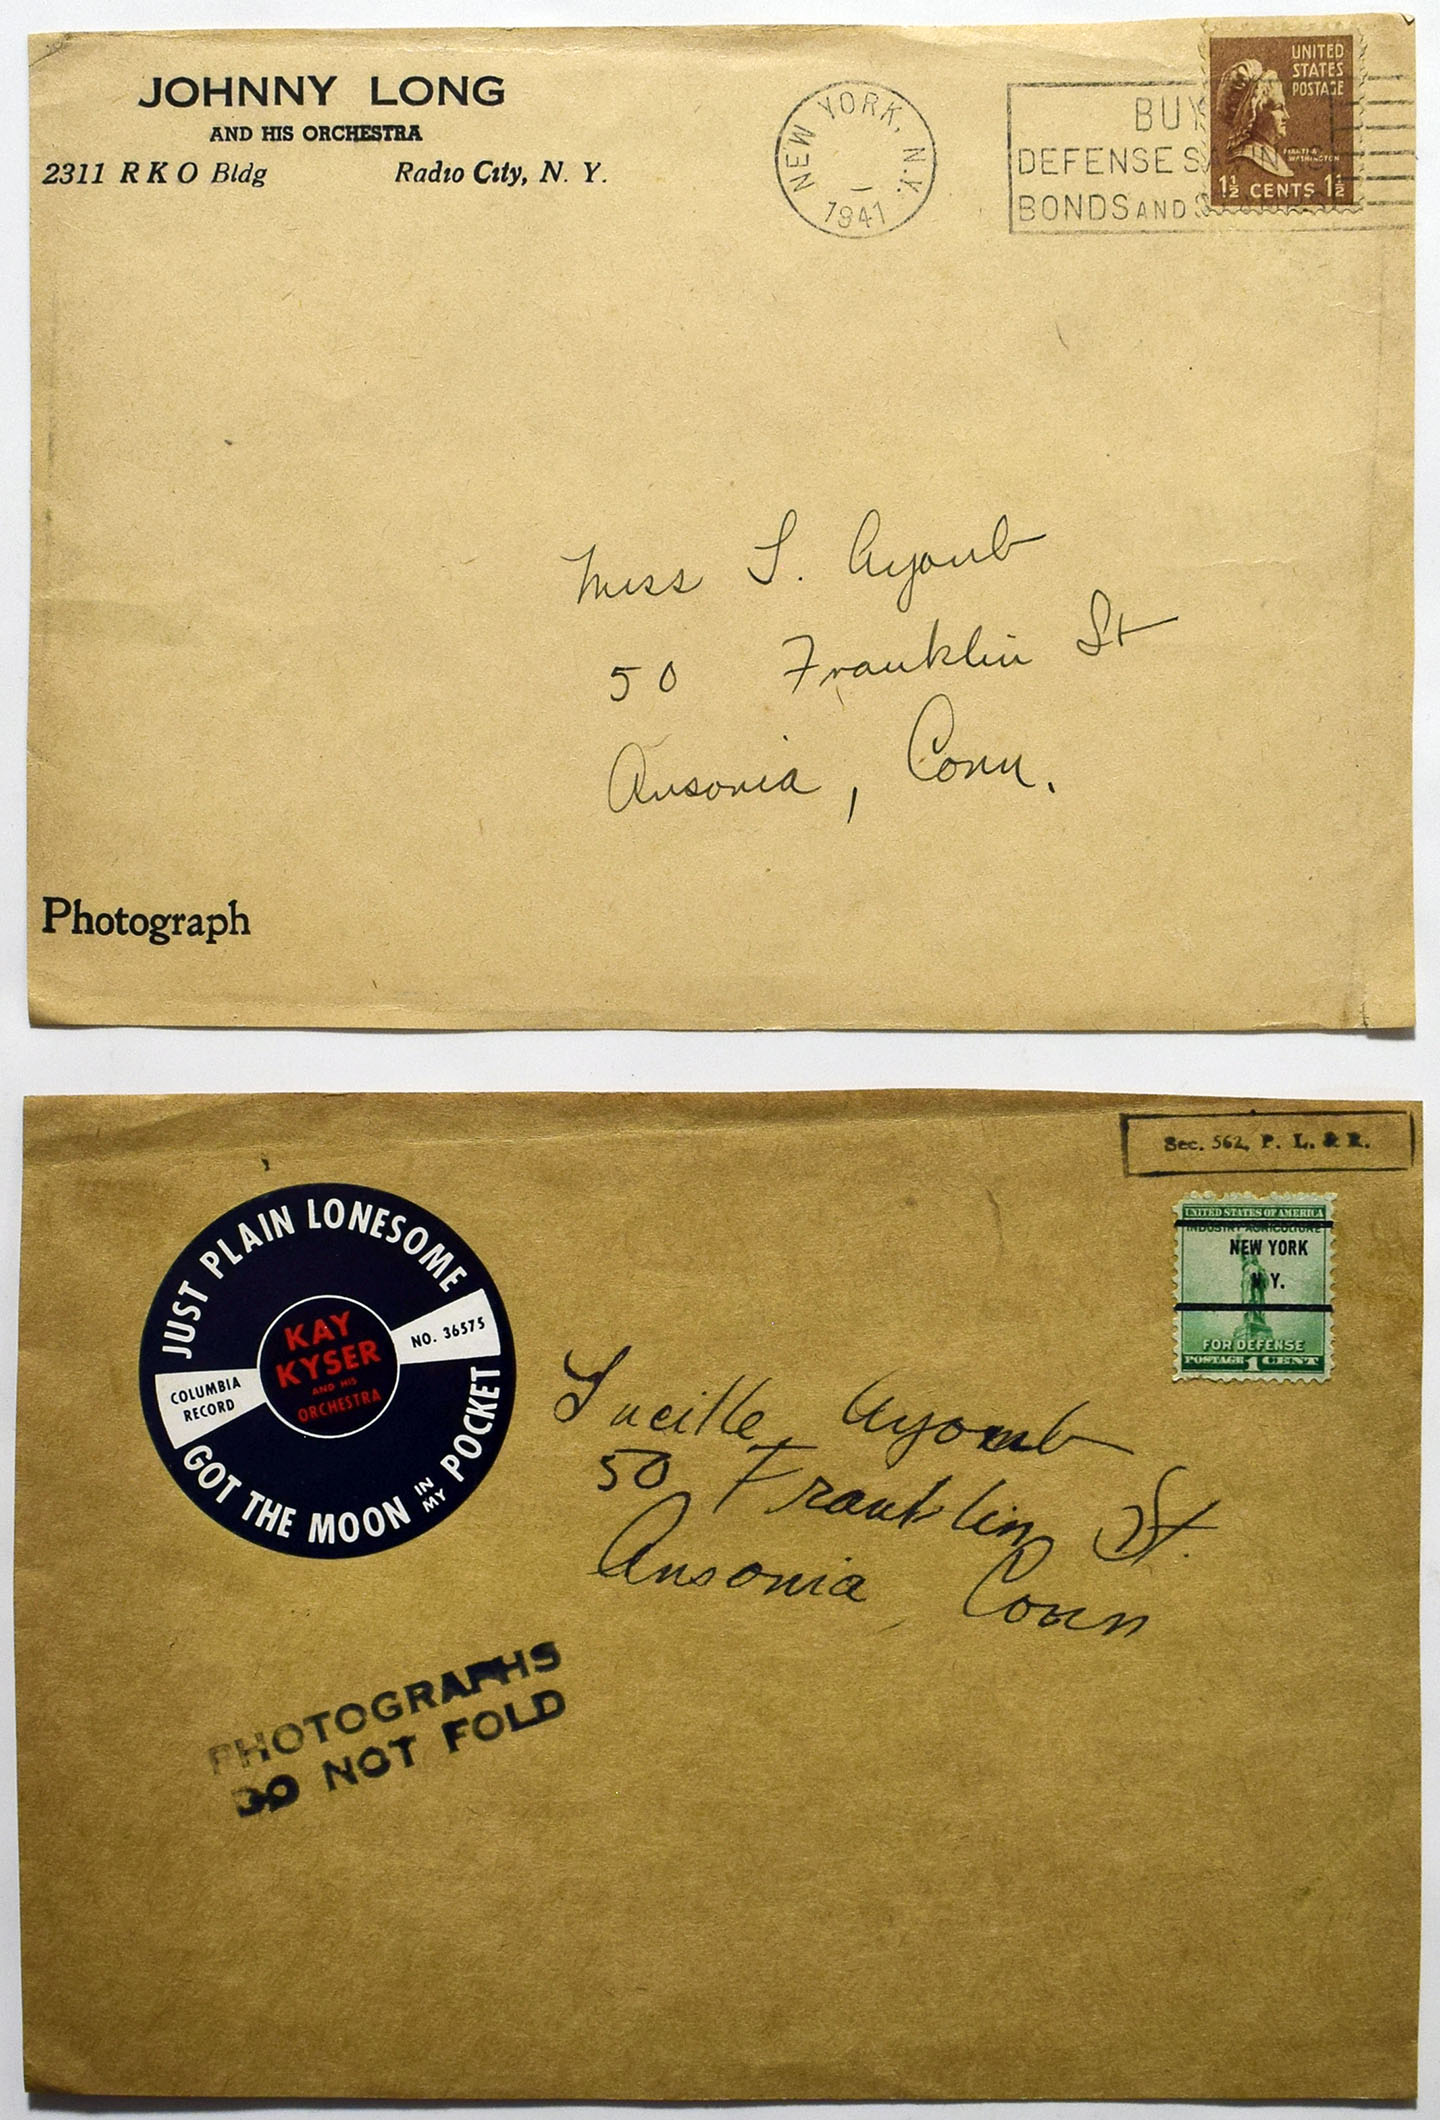 JOHNNY LONG
AND HIS ORCHESTRA
2311 RKO Bldg Radio City, N. Y.
NEW YORK, N.Y.
1941
BUY
DEFENSE SAVINGS
BONDS AND STAMPS
UNITED
STATES
POSTAGE
MARTHA
WASHINGTON
1½ CENTS 1½
Miss L. Ayoub
50 Franklin St
Ansonia, Conn.
Photograph
Sec. 562, P. L. & R.
UNITED STATES OF AMERICA
INDUSTRY AGRICULTURE
NEW YORK
N.Y.
FOR DEFENSE
POSTAGE 1 CENT
JUST PLAIN LONESOME
KAY
KYSER
AND HIS
ORCHESTRA
NO. 36575
COLUMBIA
RECORD
GOT THE MOON IN MY POCKET
Lucille Ayoub
50 Franklin St.
Ansonia, Conn
PHOTOGRAPHS
DO NOT FOLD